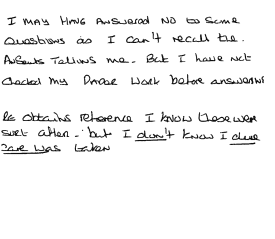 I MAY HAVE ANSWERED NO to Some
Questions as I can't recall the.
Agents Talling me. But I have not
checked my Paper Work before answering
Re Obtains reference I know these were
sort after.. but I don't know I due
care was taken